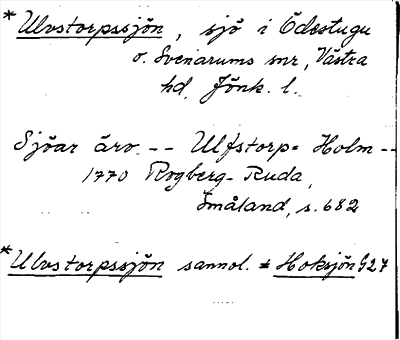 *Ulvstorpssjön, sjö i Ödestugu
o. Svenarums snr, Västra
hd, Jönk. l.
Sjöar äro -- Ulfstorp= Holm --
1770 Rogberg-Ruda,
Småland, s. 682
*Ulvstorpssjön sannol. = Hoksjön G27